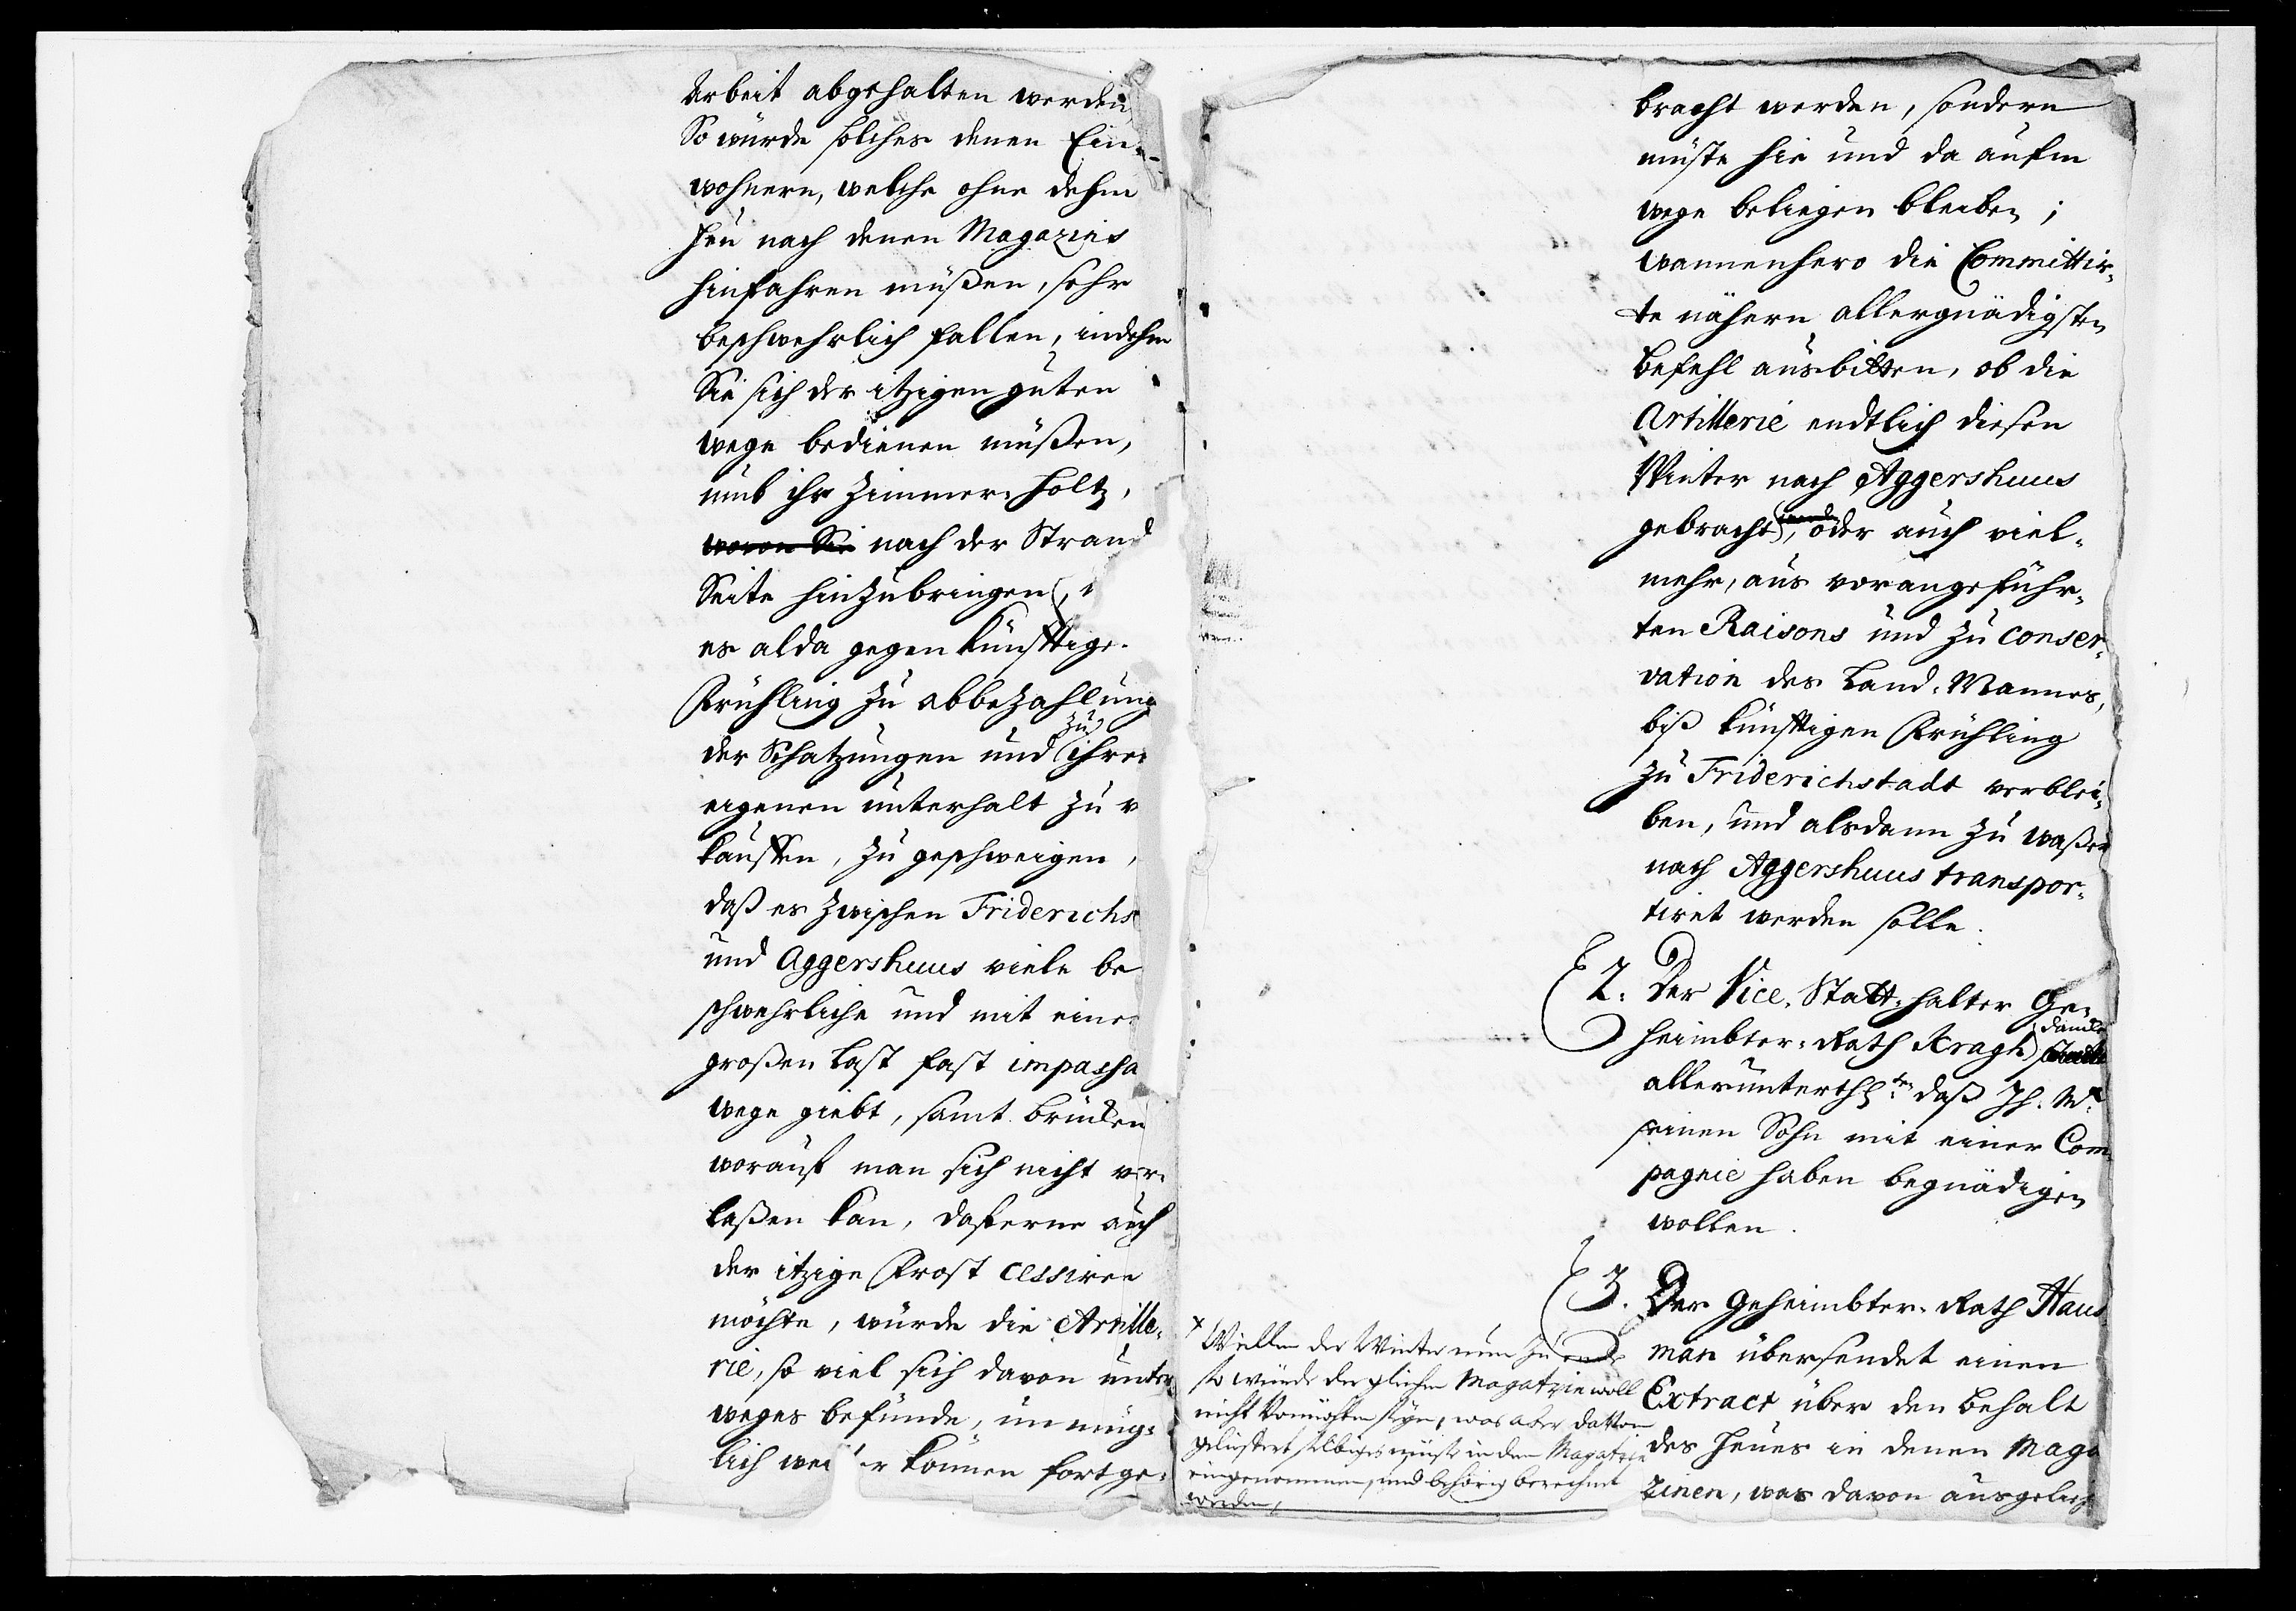 Arbeit abgehalten werden,
So würde solches denen Ein-
wohnern, welche ohne dehm
heu nach denen Magazins
hinfahren müßen, sehr
beschwehrlich fallen, indehm
Sie sich der itzigen guten
wege bedienen müßen,
umb ihr Zimmer-holtz,
nach der Strand
Seite hinzubringen,
es alda gegen künfftige
Frühling zu abbezahlung
der Schatzungen und zu ihren
eigenen unterhalt zu v
kauffen, zu geschweigen,
daß es zwischen Friderichs
und Aggershuus viele be
schwehrliche und mit einer
großen Last fast impassa
wege giebt, samt brücken
worauf man sich nicht ver-
laßen kan, daferne auch
der itzige Frost cessiren
möchte, würde die Artille-
rie, so viel sich davon unter
weges befünde, unmüg-
lich weiter können fortge-
bracht werden, sondern
müste hie und da aufm
wege beliegen bleiben;
wannenhero die Committir-
te nähern allergnädigsten
befehl ausbitten, ob die
Artillerie endtlich diesen
Winter nach Aggershuus
gebracht, oder auch viel-
mehr, aus vorangeführ-
ten Raisons und zu conser-
vation des Land-Mannes,
biß künfftigen Frühling
zu Friderichstadt verblei-
ben, und alsdann zu waßer
nach Aggershuus transpor-
tiret werden solle.
2. Der Vice-Statthalter Ge-
heimbter-Rath Kragh dancket
allerunterthgst. daß Ih. Mt.
seinen Sohn mit einer Com-
pagnie haben begnädigen
wollen.
3. Der Geheimbter-Rath Haus
man übersendet einen
Extract über den behalt
des heues in denen Maga
zinen, was davon ausgelief
x Weillen der Winter nun zu ende
so würde dergleichen Magatzin woll
nicht vonnöhten seyn, was aber davon
geliefert selbiges müste in den Magatzin
eingenommen, und behörig berechnet
werden,